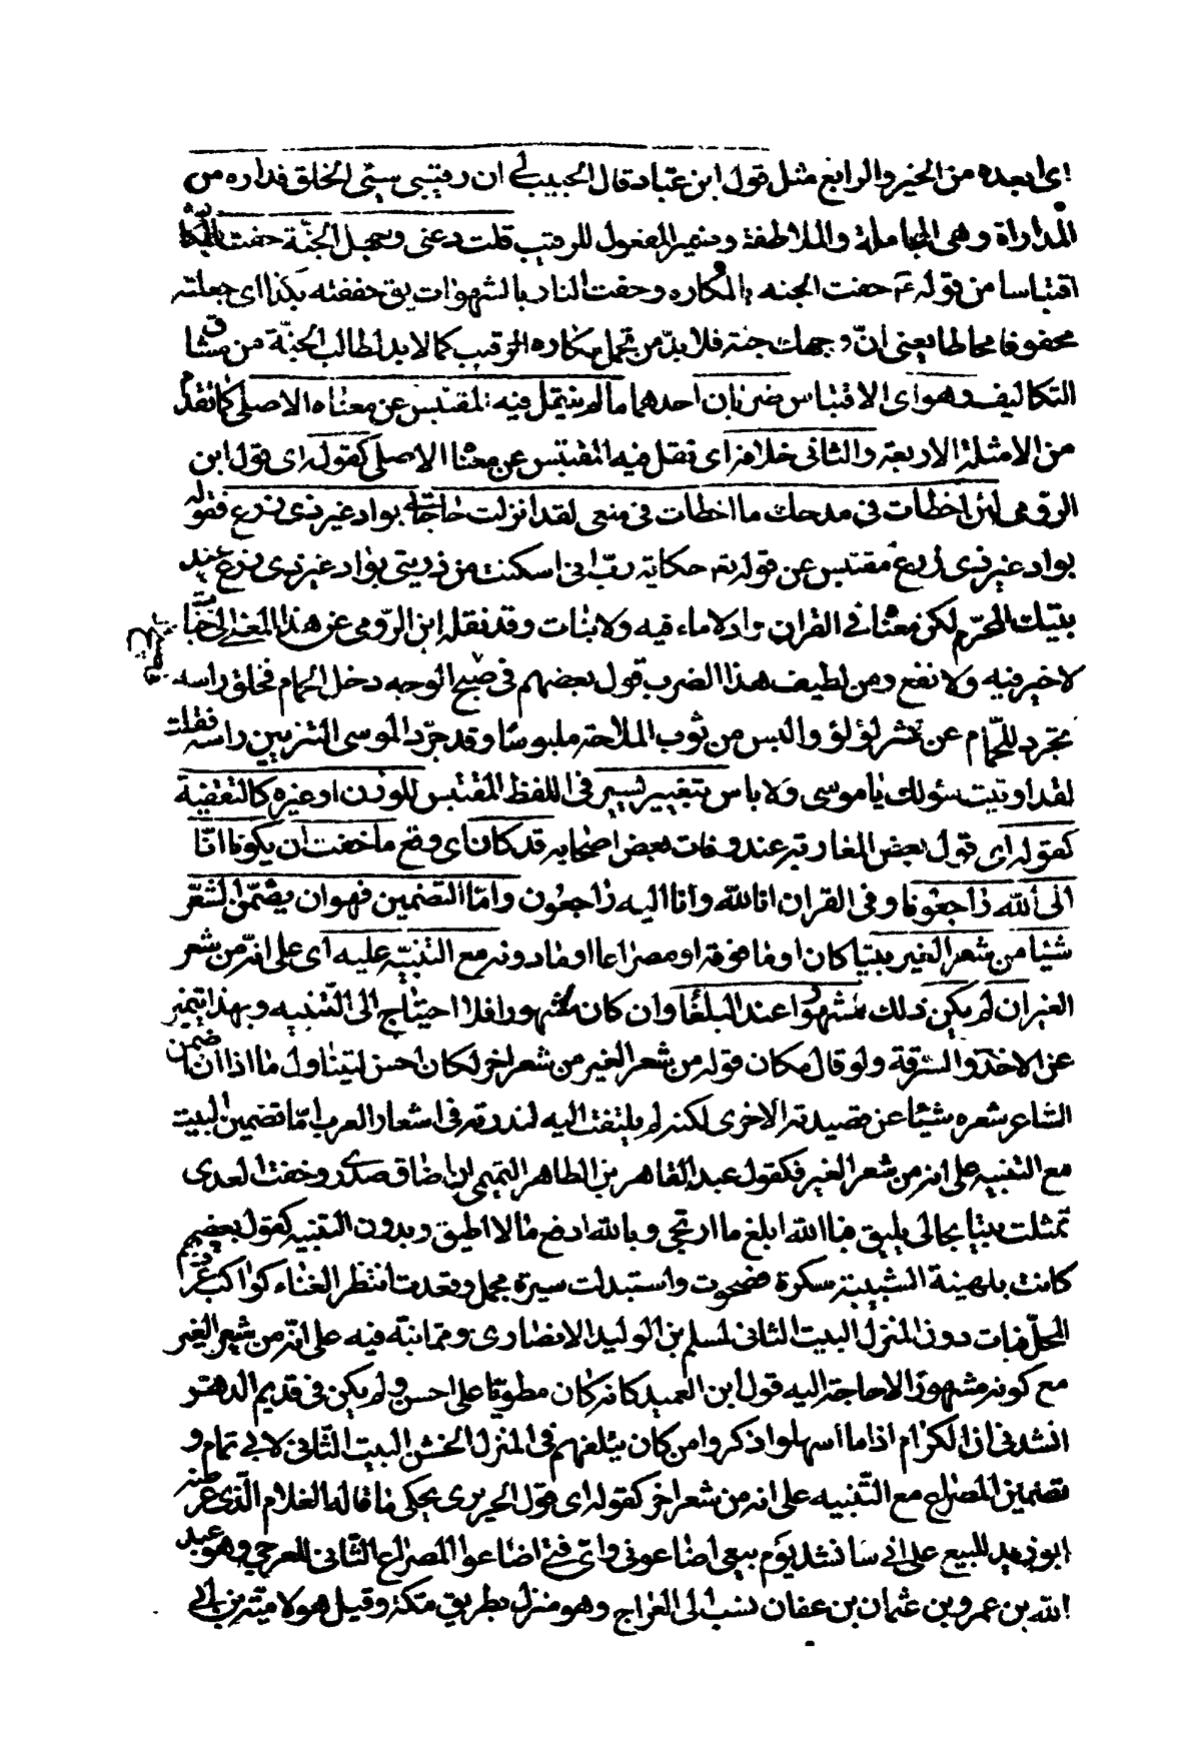 اى ابعده من الخير والرابع مثل قول ابن عباد قال الحبيب لى ان رقيبى سيئ الخلق فداره من
المداراة وهى المجاملة والملاطفة وضمير المفعول للرقيب قلت دعنى وجهك الجنّة حفت بالمكاره
اقتباسا من قوله عم حفت الجنه بالمكاره وحفت النار بالشهوات يق حففته بكذا اى جعلته
محفوفا محاطا يعنى انّ وجهك جنة فلا بدّ من تحمل مكاره الرقيب كما لا بد لطالب الجنّة من مشاق
التكاليف وهو اى الاقتباس ضربان احدهما ما لم ينقل فيه المقتبس عن معناه الاصلى كما تقدم
من الامثلة الاربعة والثانى خلافه اى نقل فيه المقتبس عن معناه الاصلى كقوله اى قول ابن
الرومى لئن اخطات فى مدحك ما اخطات فى منعى لقد انزلت حاجاتى بواد غير ذى زرع فقوله
بواد غير ذى زرع مقتبس عن قوله تع حكاية ربّ انى اسكنت من ذريتى بواد غير ذى زرع عند
بيتك المحرّم لكن معناه فى القران واد لا ماء فيه ولا نبات وقد نقله ابن الرّومى عن هذا المعنى الى جناب
لا خير فيه ولا نفع ومن لطيف هذا الضرب قول بعضهم فى صبيح الوجه دخل الحمام فحلق راسه
تجرد للحّمام عن قشر لؤلؤ والبس من ثوب الملاحة ملبوسا وقد جرّد الموسى لتزيين راسه فقلت
لقد اوتيت سؤلك يا موسى ولا باس بتغيير يسير فى اللفظ المقتبس للوزن او غيره كالتقفية
كقوله اى قول بعض المغاربة عند وفات بعض اصحابه قد كان اى وقع ما خفت ان يكونا انّا
الى الله راجعونا وفى القران انا لله وانا اليه راجعون وامّا التضمين فهو ان يضمّن الشعر
شيئا من شعر الغير بيتا كان او ما فوقه او مصراعا او ما دونه مع التنبيه عليه اى على انّه من شعر
الغير ان لم يكن ذلك مشهورا عند البلغاء وان كان مشهورا فلا احتياج الى التّنبيه وبهذا يتميز
عن الاخذ والسّرقة ولو قال مكان قوله من شعر الغير من شعر اخر لكان احسن ليتناول ما اذا ضمن
الشاعر شعره شيئا عن قصيدته الاخرى لكنه لم يلتفت اليه لندرته فى اشعار العرب امّا تضمين البيت
مع التنبيه على انه من شعر الغير فكقول عبد القاهر بن الطاهر التميمى اذا ضاق صدرى وخفت العدى
تمثلت بيتا بحالى يليق فبالله ابلغ ما ارتجى وبالله ادفع ما لا اطيق وبدون التنبيه كقول بعضهم
كانت بلهنية الشبيبة سكرة فصحوت واستبدلت سيرة مجمل وقعدت انتظر الفناء كراكب عرف
المحلّ فبات دون المنزل البيت الثانى لمسلم بن الوليد الانصارى ومما نبّه فيه على انّه من شعر الغير
مع كونه مشهورا لا حاجة اليه قول ابن العميد كانه كان مطويّا على احسن ولم يكن فى قديم الدهر
انشدنى ان الكرام اذا ما اسهلوا ذكروا من كان يئلفهم فى المنزل الخشن البيت الثّانى لابى تمام و
تضمين المصراع مع التّنبيه على انه من شعر اخر كقوله اى قول الحريرى يحكى ما قاله الغلام الّذى عرضه
ابو زيد للبيع على انى سانشد يوم بيعى اضاعونى واىّ فتى اضاعوا المصراع الثّانى للعرجى وهو عبد
الله بن عمرو بن عثمان بن عفان نسب الى العراج وهو منزل بطريق مكة وقيل هو لامية بن ابى